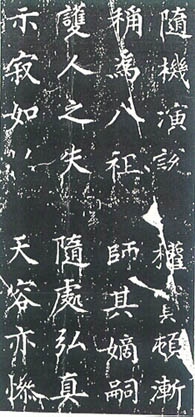 隨機演說 權頓漸
稱為八祖 師其嫡嗣
護人之失 隨處弘真
示寂如 天容亦慘